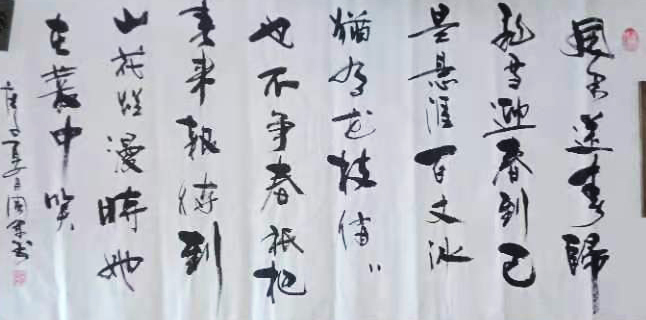 風雨送春歸
飛雪迎春到已
是悬崖百丈冰
猶有花枝俏〃
也不争春祇把
春来報待到
山花烂漫時她
在叢中笑
夏月周